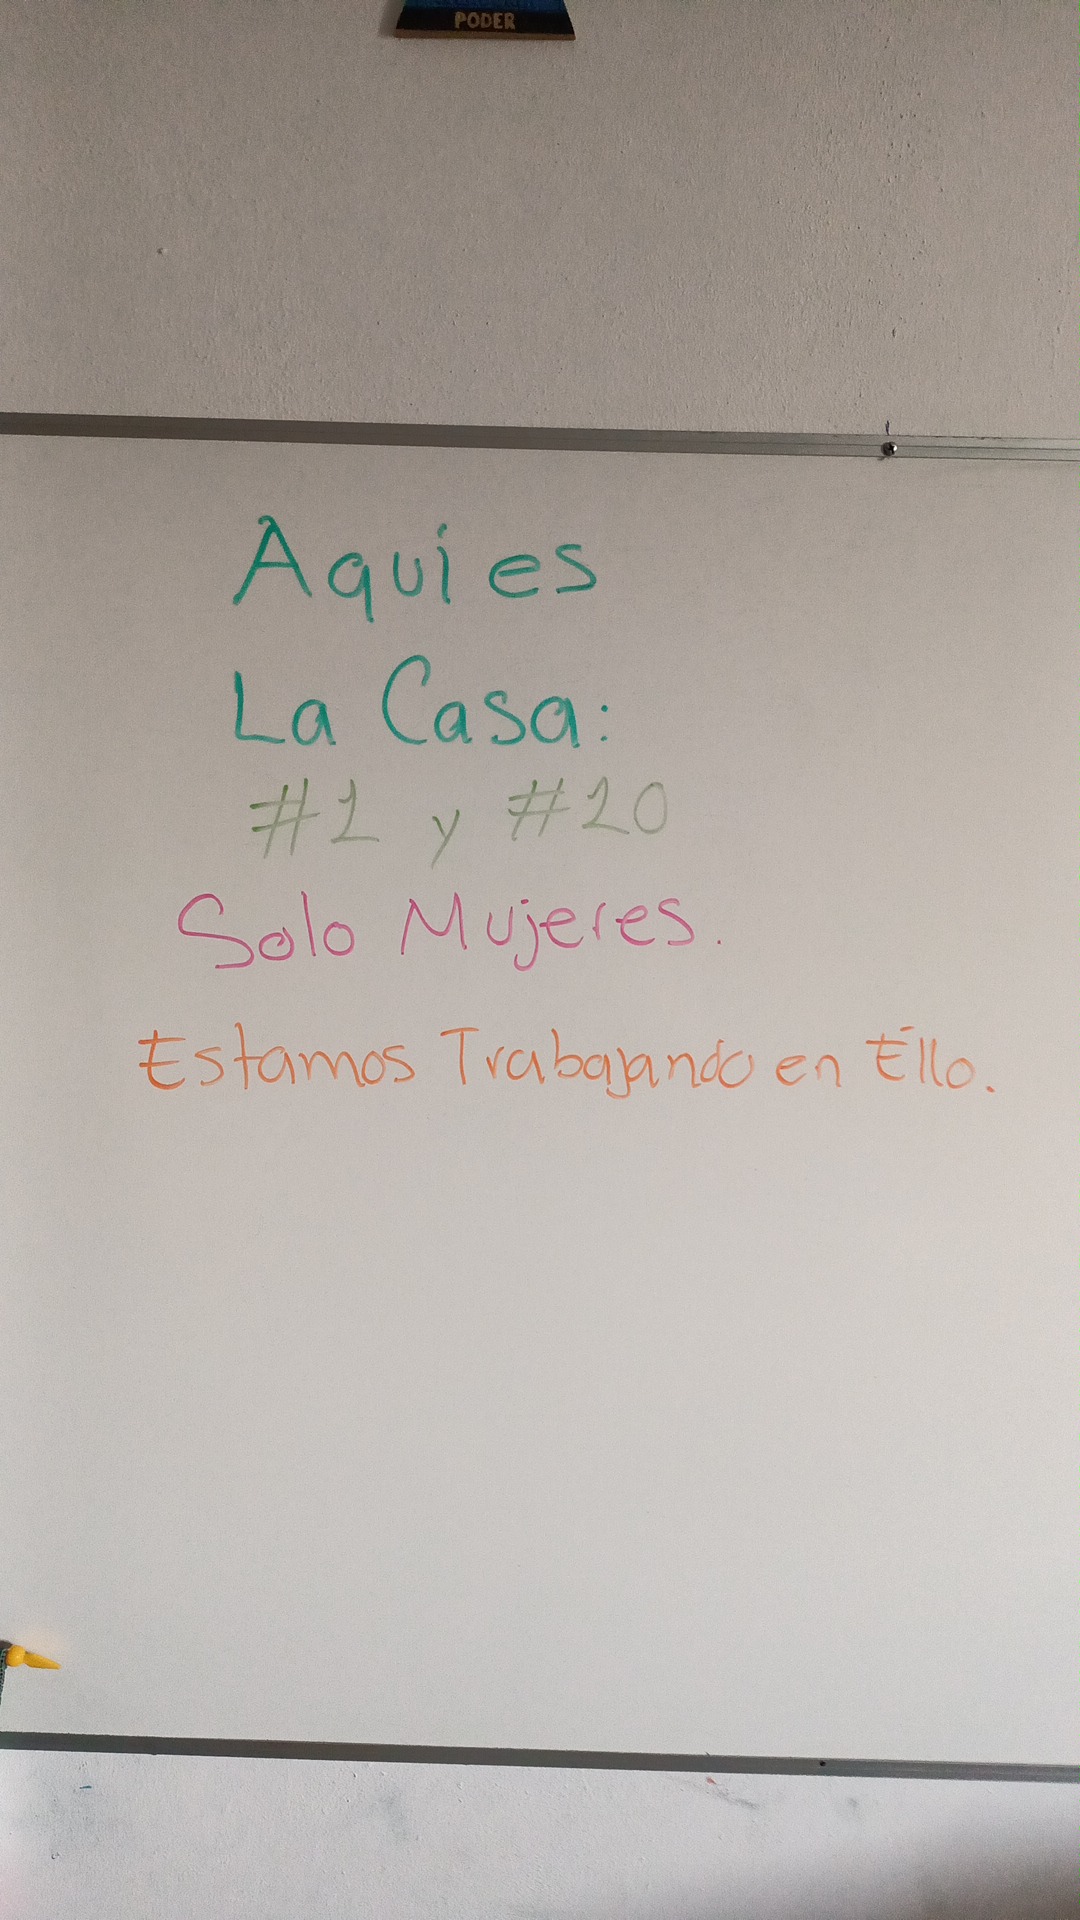 PODER
Aqui es
La Casa:
#1 y #20
Solo Mujeres.
Estamos Trabajando en Ello.